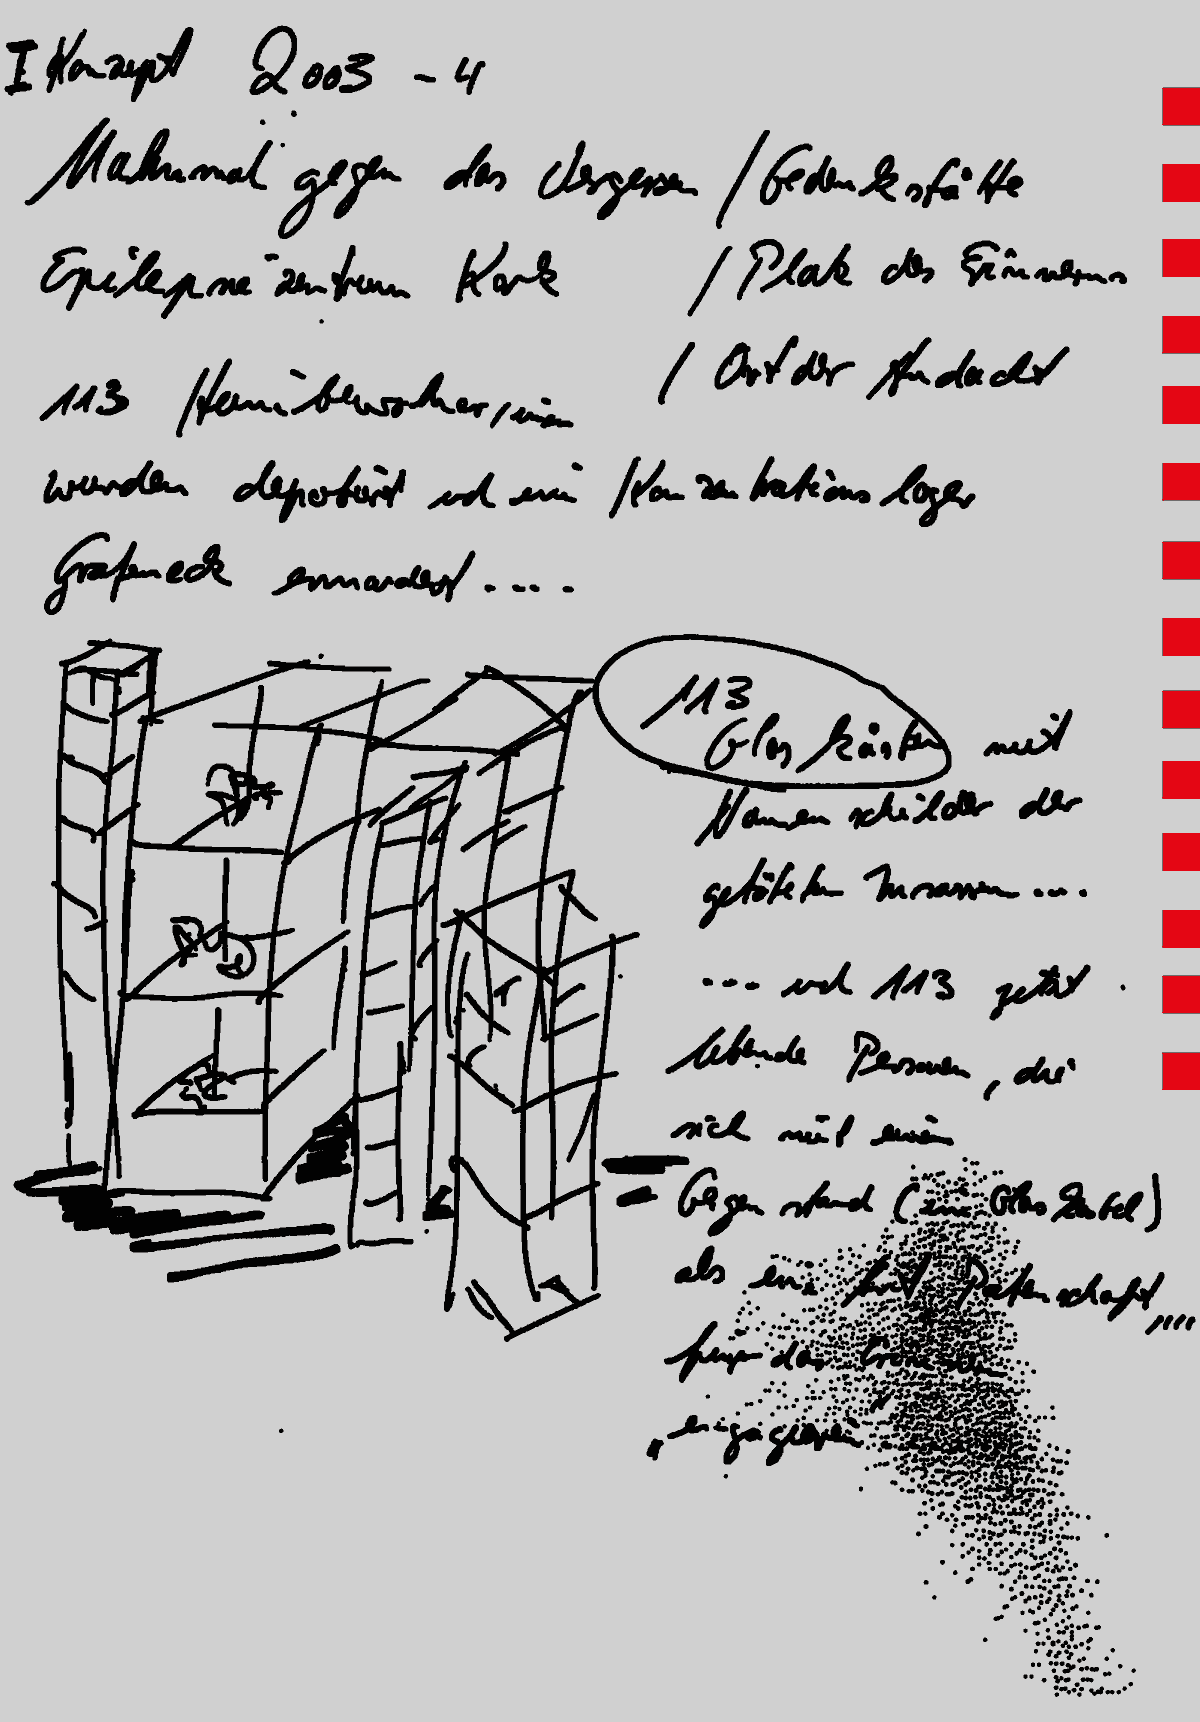 I Konzept 2003-4
Mahnmal gegen das Vergessen / Gedenkstätte
Epilepsiezentrum Kork / Platz des Erinnerns
/ Ort der Andacht
113 Heimbewohner/innen
wurden deportiert und im Konzentrationslager
Grafeneck ermordet ....
113
Glaskästen mit
Namenschilder der
getöteten Insassen ....
.... und 113 jetzt
lebende Personen, die
sich mit einem
Gegenstand (eine Glaskabel)
als eine Art Patenschaft,,,,,
für das
"engagieren"